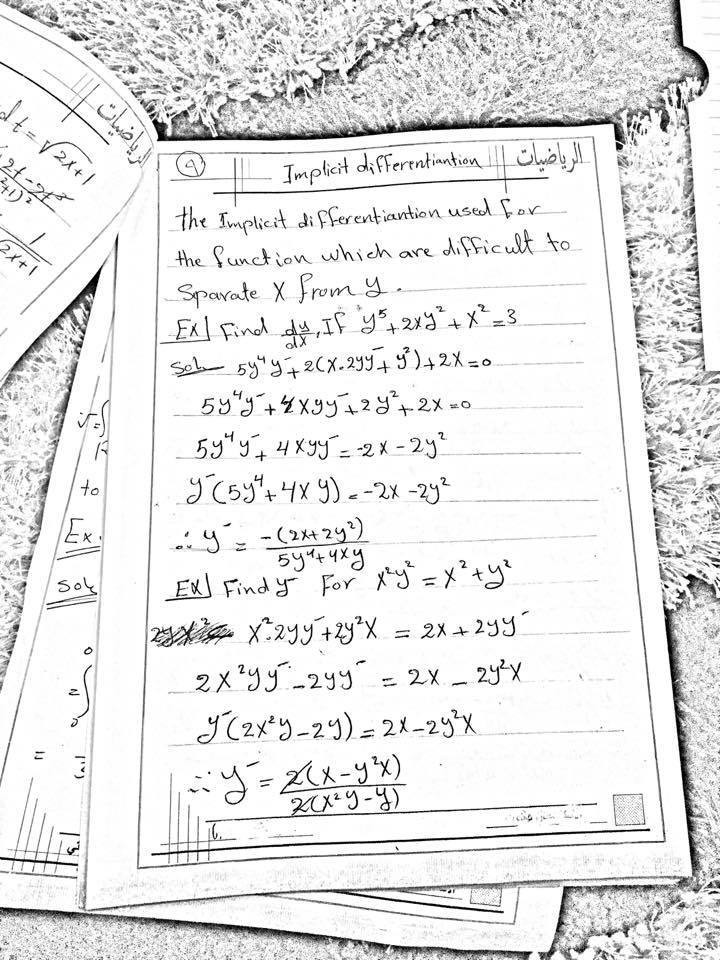 dt = √2x+1
الرياضيات
1
√2x+1
to
Ex.
Sol
9
Implicit differentiantion
الرياضيات
the Implicit differentiantion used for
the function which are difficult to
Sparate X from y.
Ex] Find dy/dx, If y⁵+2xy²+x²=3
Sol 5y⁴y⁻+2(x·2yy⁻+y²)+2x=0
5y⁴y⁻+4xyy⁻+2y²+2x=0
5y⁴y⁻+4xyy⁻=-2x-2y²
y⁻(5y⁴+4xy)=-2x-2y²
∴ y⁻ = -(2x+2y²)/5y⁴+4xy
Ex] Find y⁻ For x²y²=x²+y²
x²·2yy⁻+2y²x = 2x+2yy⁻
2x²yy⁻-2yy⁻ = 2x-2y²x
y⁻(2x²y-2y)=2x-2y²x
∴ y⁻ = 2(x-y²x)/2(x²y-y)